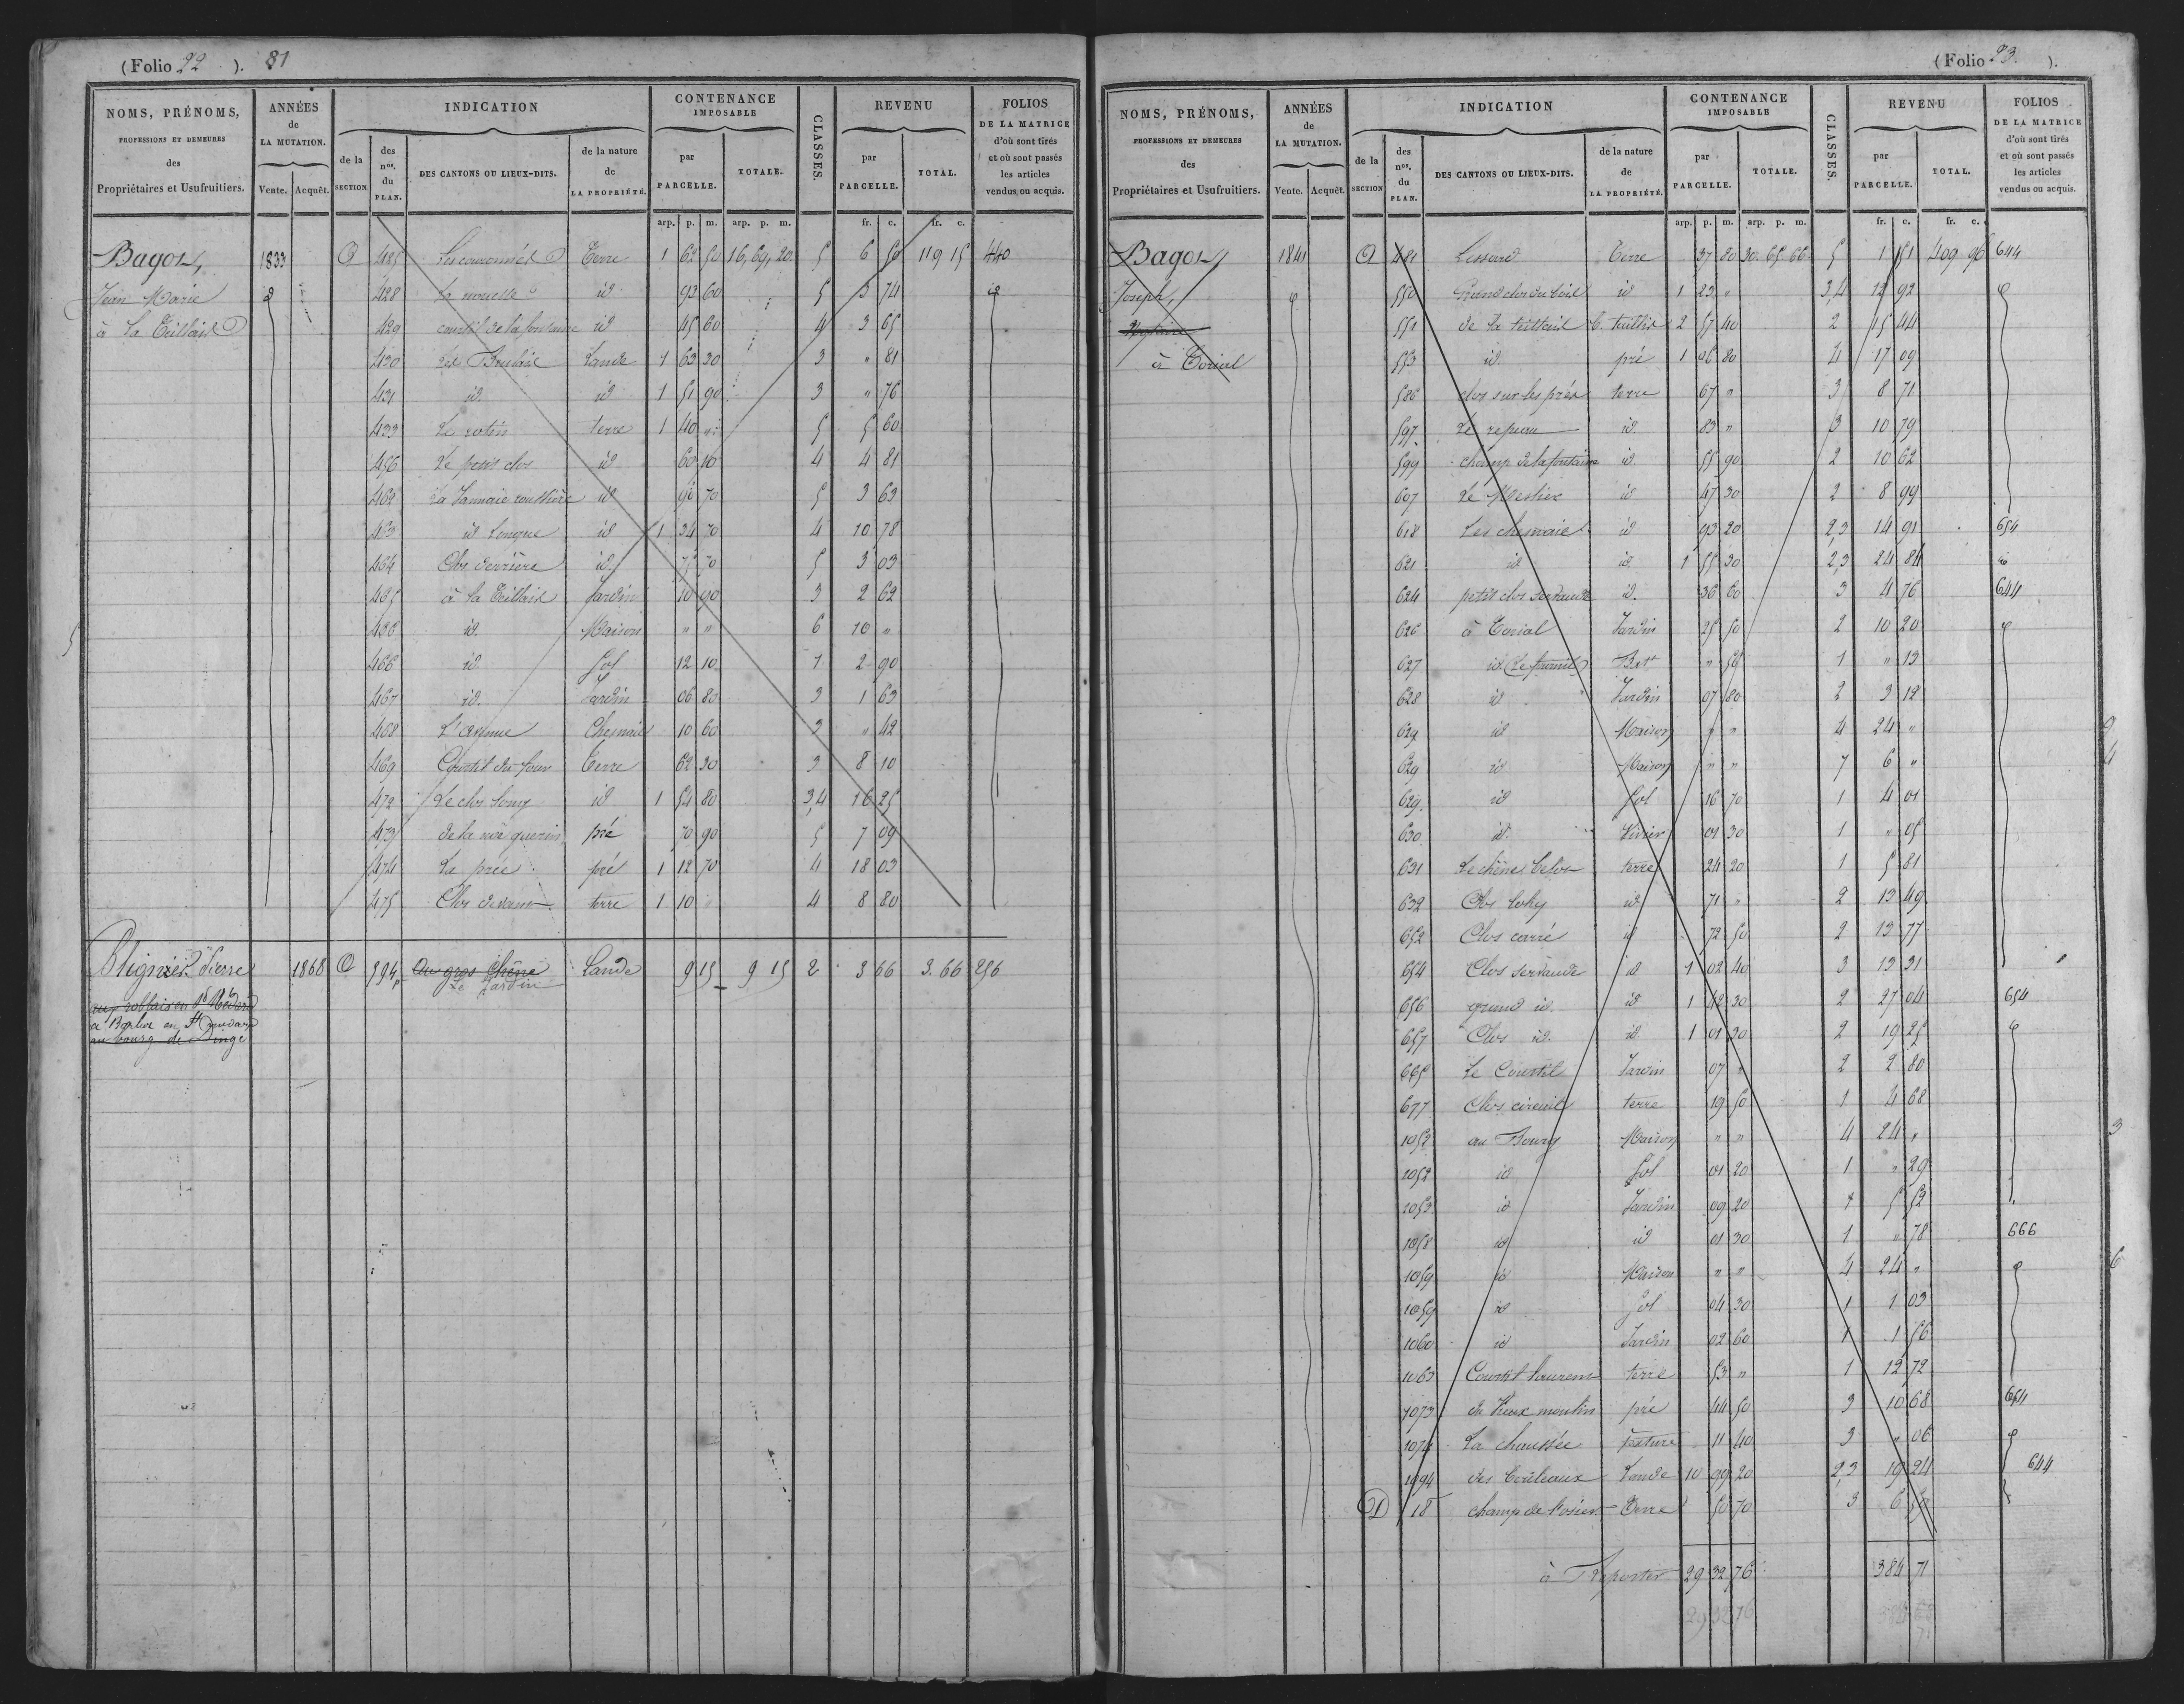 (Folio 22 ). 81
NOMS, PRÉNOMS, PROFESSIONS ET DEMEURES des Propriétaires et Usufruitiers.
ANNÉES de LA MUTATION. Vente. Acquêt.
INDICATION de la SECTION des nos. du PLAN. DES CANTONS OU LIEUX-DITS. de la nature de LA PROPRIÉTÉ.
CONTENANCE IMPOSABLE par PARCELLE. TOTALE.
CLASSES.
REVENU par PARCELLE. TOTAL.
FOLIOS DE LA MATRICE d'où sont tirés et où sont passés les articles vendus ou acquis.
arp. p. m. arp. p. m. fr. c. fr. c.
Bagot, 1833 425 Terre 1 62 50 16, 69, 20 5 6 50 119 15 440
Jean Marie 428 la nouette id 93 60 5 3 74 id
à la Teillais 429 courtil de la fontaine id 45 60 4 3 65
430 Lande 1 63 30 3 " 81
431 id. id 1 51 90 3 " 76
433 terre 1 40 " 5 5 60
456 Le petit clos id 60 10 4 4 81
462 id 70 5 3 63
463 id longue id 1 34 70 4 10 78
464 Clos derrière id. 75 70 5 3 03
465 à la Teillais Jardin 10 90 3 2 62
466 id. Maison " " 6 10 "
466 id. Sol 12 10 1 2 90
467 id. Jardin 06 80 3 1 63
468 L'avenue Chesnaie 10 60 3 " 42
469 Courtil du four Terre 62 30 3 8 10
472 Le clos long id 1 54 80 3,4 16 25
473 de la noë guerin pré 70 90 5 7 09
474 La prée pré 1 12 70 4 18 03
475 Clos devant terre 1 10 4 8 80
Blignier Pierre 1868 594p Au gros chêne Lande 9 15 9 15 2 3 66 3.66 256
Le Jardin
au bourg de Dingé
(Folio 23. ).
NOMS, PRÉNOMS, PROFESSIONS ET DEMEURES des Propriétaires et Usufruitiers.
ANNÉES de LA MUTATION. Vente. Acquêt.
INDICATION de la SECTION des nos. du PLAN. DES CANTONS OU LIEUX-DITS. de la nature de LA PROPRIÉTÉ.
CONTENANCE IMPOSABLE par PARCELLE. TOTALE.
CLASSES.
REVENU par PARCELLE. TOTAL.
FOLIOS DE LA MATRICE d'où sont tirés et où sont passés les articles vendus ou acquis.
arp. p. m. arp. p. m. fr. c. fr. c.
Bagot 1841 481 Lessard Terre 37 80 30. 65. 66 5 1 51 409 96 644
Joseph, 550 id 1 23 " 3,4 12 92
551 de la teillais b. taillis 2 57 40 2 15 44
à Torial 553 id. pré 1 06 80 4 17 09
586 clos sur les prés terre 67 " 3 8 71
597 Le repeau id. 83 " 3 10 79
599 champ de la fontaine id. 55 90 2 10 62
607 Le Meslier id 47 30 2 8 99
618 Les chesnaies id 93 20 2,3 14 91 654
621 id id. 1 55 30 2,3 24 84 id
624 petit clos servaude id. 36 60 3 4 76 644
626 à Torial Jardin 25 50 2 10 20
627 id. (Le fournil) Bat 1 " 13
628 id Jardin 07 80 2 3 12
629 id Maison " " 4 24 "
629 id Maison " " 7 6 "
629 id Sol 16 70 1 4 01
630 id. Vivier 01 30 1 " 05
631 Le chêne terre 24 20 1 5 81
632 Clos id 71 " 2 13 49
652 Clos carré id 72 50 2 13 77
654 Clos servaude id 1 02 40 3 13 31
656 grand id. id 1 42 30 2 27 04 654
657 Clos id. id. 1 01 30 2 19 25
665 Le Courtil Jardin 07 " 2 2 80
677 Clos circuit terre 19 50 1 4 68
1052 au Bourg Maison " " 4 24 "
1052 id Sol 01 20 1 " 29
1053 id Jardin 09 20 1 5 52
1058 id id 01 30 1 " 78 666
1059 id Maison " " 4 24 "
1059 id Sol 04 30 1 1 03
1060 id Jardin 02 60 1 1 56
1063 Courtil laurent terre 53 " 1 12 72
1073 du Vieux moulin pré 44 50 3 10 68 654
1074 La chaussée pâture 11 40 3 " 06
1094 Lande 10 99 20 2,3 19 24 644
D 18 champ de l'osier Terre 50 70 3 6
à Reporter 29 32 76 384 71
29 32 76